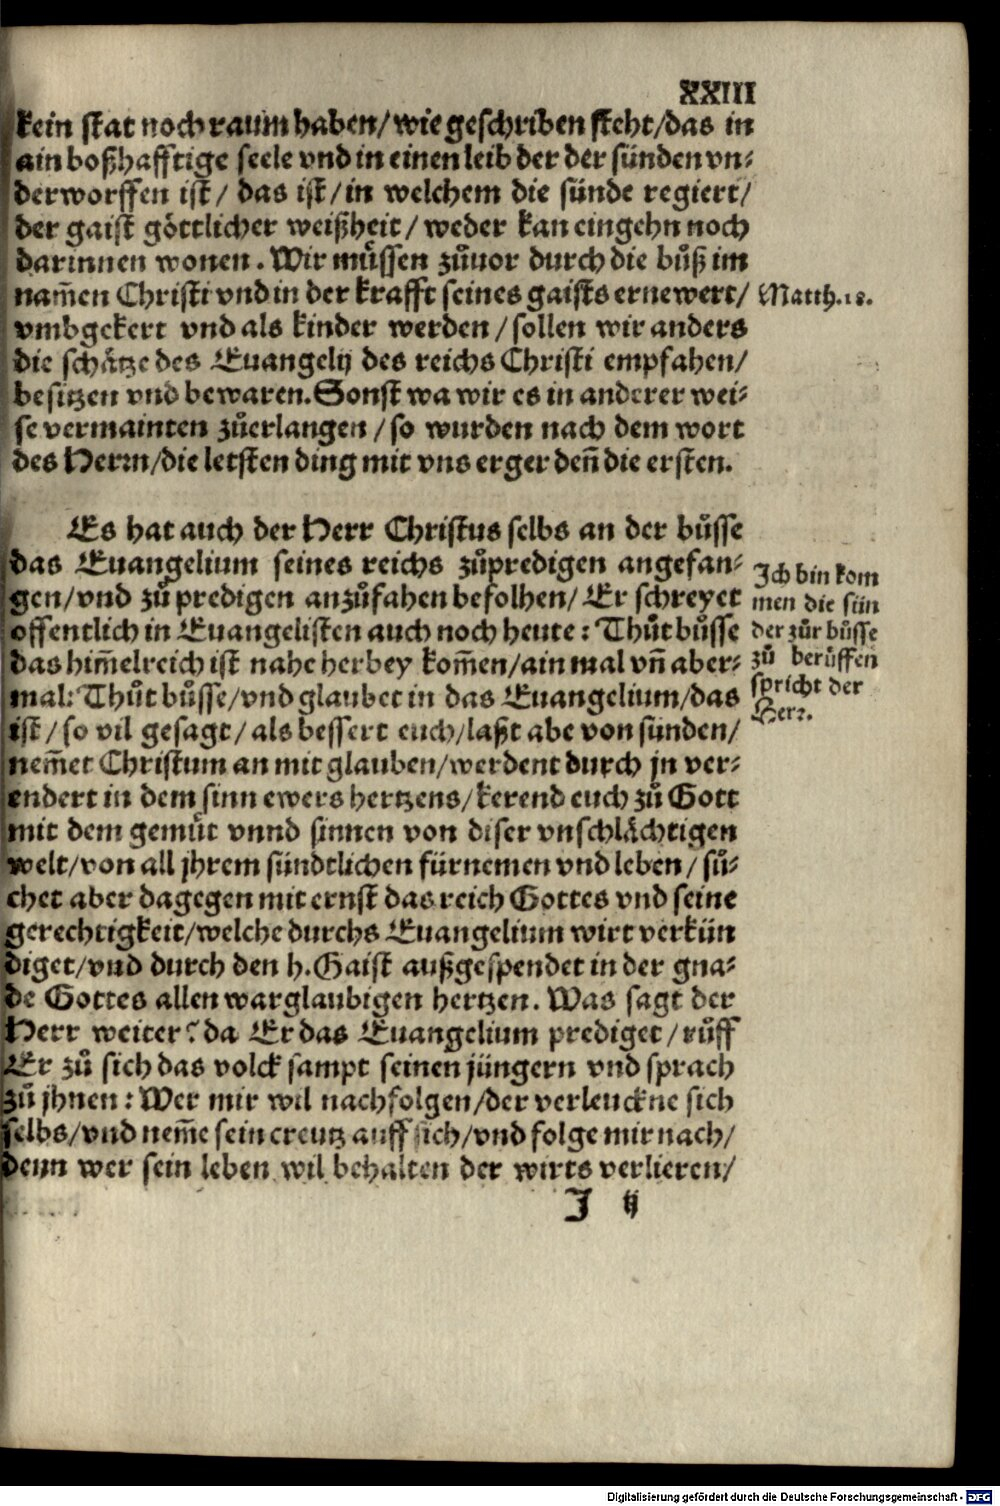 XXIII
kein stat noch raum haben/ wie geschriben steht/ das in
ain boßhafftige seele vnd in einen leib der der sünden vn⸗
derworffen ist/ das ist/ in welchem die sünde regiert/
der gaist göttlicher weißheit/ weder kan eingehn noch
darinnen wonen. Wir müssen zůuor durch die bůß im
nam̃en Christi vnd in der krafft seines gaists ernewert/
vmbgekert vnd als kinder werden/ sollen wir anders
die schätze des Euangelij des reichs Christi empfahen/
besitzen vnd bewaren. Sonst wa wir es in anderer wei⸗
se vermainten zůerlangen/ so wurden nach dem wort
des Herrn/ die letsten ding mit vns erger deñ die ersten.
Matth.18.
Es hat auch der Herr Christus selbs an der bůsse
das Euangelium seines reichs zůpredigen angefan⸗
gen/ vnd zů predigen anzůfahen befolhen/ Er schreyet
offentlich in Euangelisten auch noch heute: Thůt bůsse
das him̃elreich ist nahe herbey kom̃en/ ain mal vñ aber⸗
mal: Thůt bůsse/ vnd glaubet in das Euangelium/ das
ist/ so vil gesagt/ als bessert euch/ laßt abe von sünden/
nem̃et Christum an mit glauben/ werdent durch jn ver⸗
endert in dem sinn ewers hertzens/ kerend euch zů Gott
mit dem gemůt vnnd sinnen von diser vnschlächtigen
welt/ von all jhrem sündtlichen fürnemen vnd leben/ sů⸗
chet aber dagegen mit ernst das reich Gottes vnd seine
gerechtigkeit/ welche durchs Euangelium wirt verkün
diget/ vnd durch den h. Gaist außgespendet in der gna⸗
de Gottes allen warglaubigen hertzen. Was sagt der
Herr weiter? da Er das Euangelium prediget/ růff
Er zů sich das volck sampt seinen jüngern vnd sprach
zů jhnen: Wer mir wil nachfolgen/ der verleuckne sich
selbs/ vnd nem̃e sein creutz auff sich/ vnd folge mir nach/
denn wer sein leben wil behalten der wirts verlieren/
Ich bin kom
men die sün
der zůr bůsse
zů berůffen
spricht der
Herr.
I ij
Digitalisierung gefördert durch die Deutsche Forschungsgemeinschaft - DFG